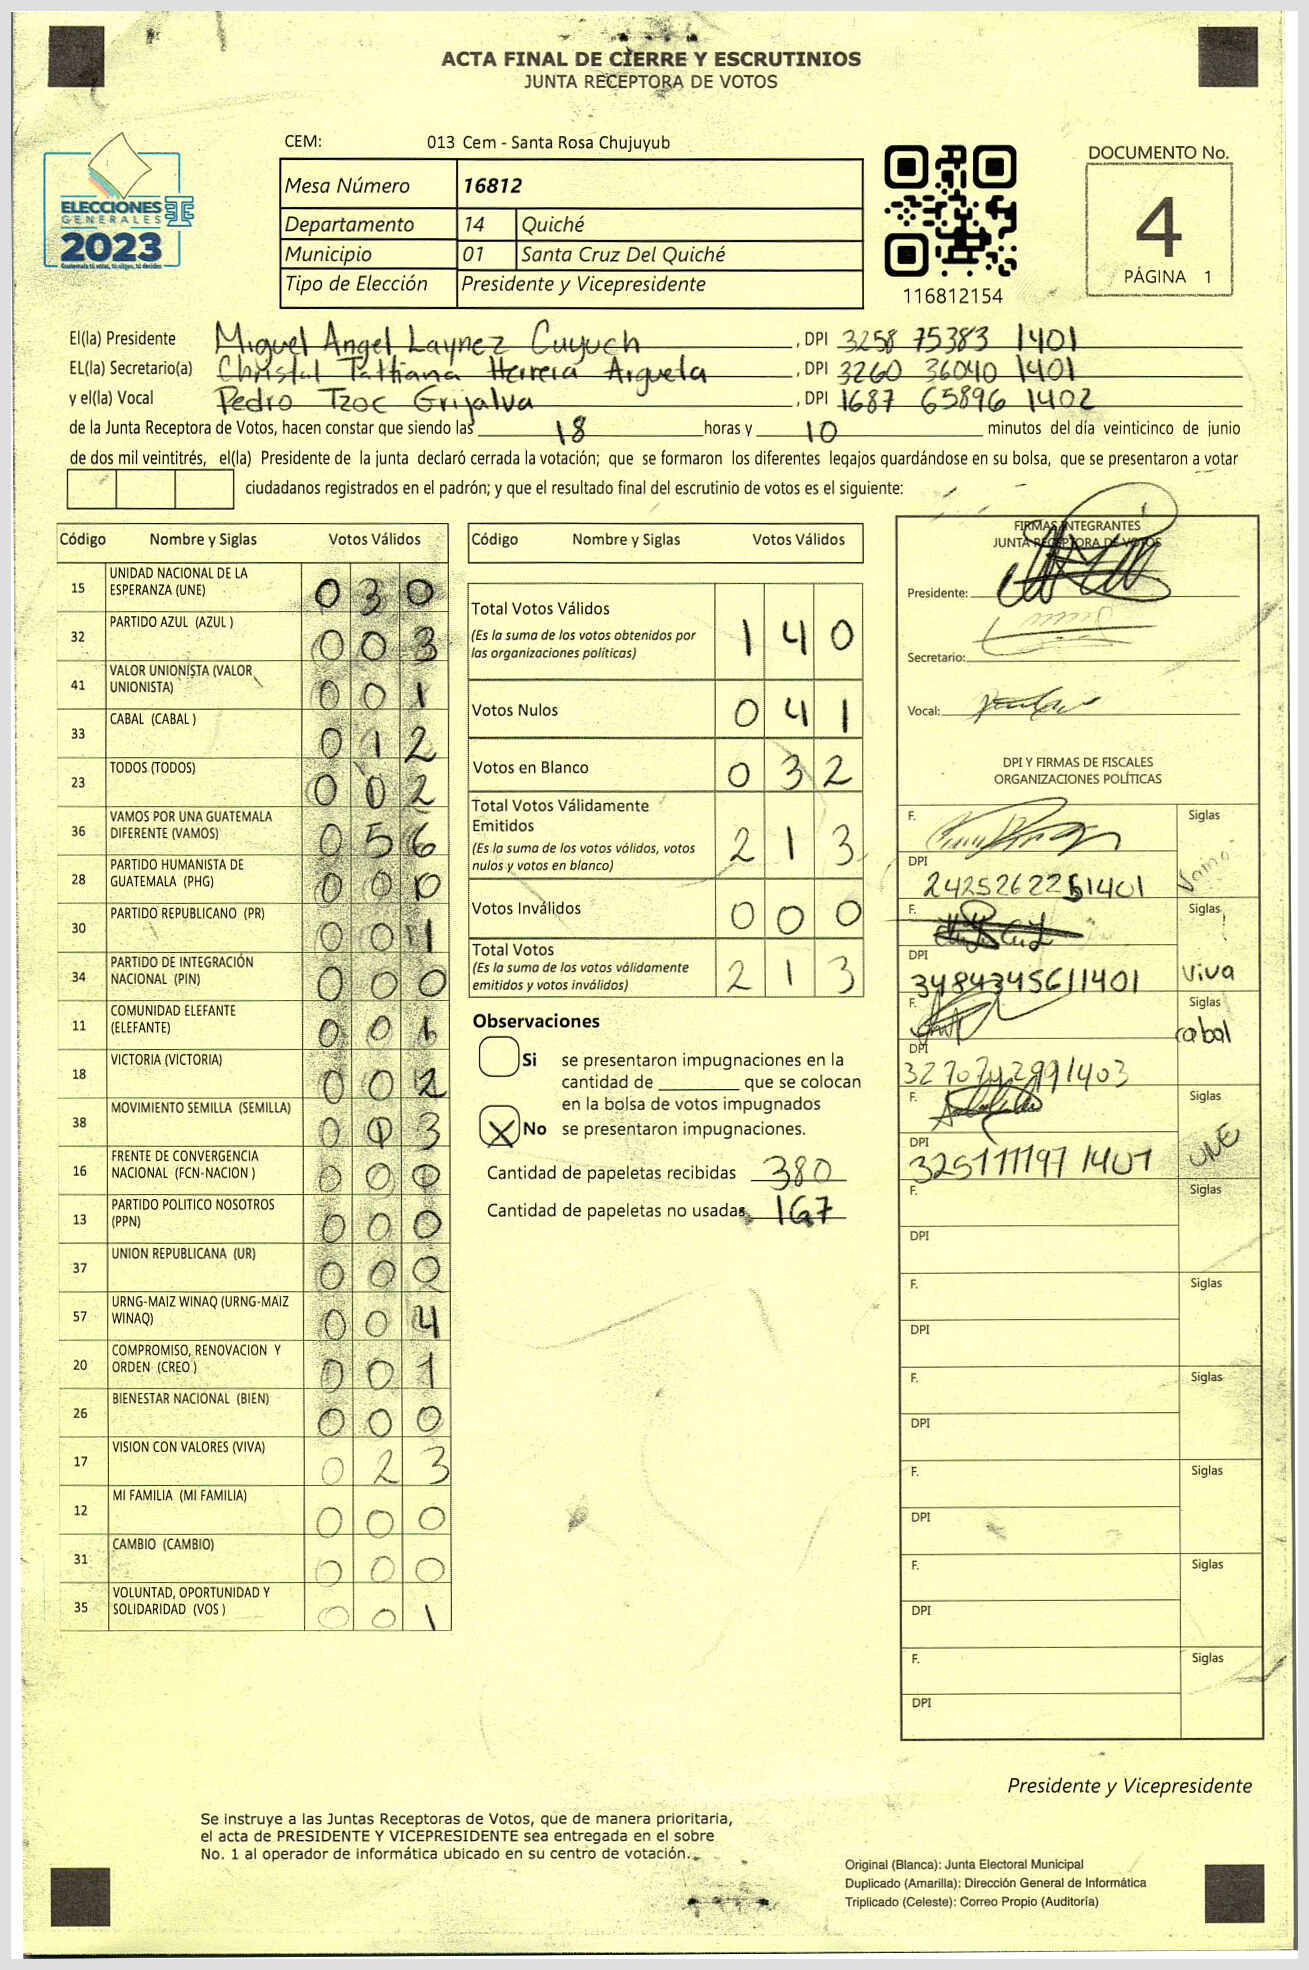 ACTA FINAL DE CIERRE Y ESCRUTINIOS
JUNTA RECEPTORA DE VOTOS
ELECCIONES
GENERALES
2023
CEM: 013 Cem - Santa Rosa Chujuyub
Mesa Número 16812
Departamento 14 Quiché
Municipio 01 Santa Cruz Del Quiché
Tipo de Elección Presidente y Vicepresidente
116812154
DOCUMENTO No.
4
PÁGINA 1
El(la) Presidente Miguel Angel Laynez Cuyuch , DPI 3258 75383 1401
EL(la) Secretario(a) Christal Tathiana Herrera Argueta , DPI 3260 36040 1401
y el(la) Vocal Pedro Tzoc Grijalva , DPI 1687 65896 1402
de la Junta Receptora de Votos, hacen constar que siendo las 18 horas y 10 minutos del día veinticinco de junio
de dos mil veintitrés, el(la) Presidente de la junta declaró cerrada la votación; que se formaron los diferentes legajos guardándose en su bolsa, que se presentaron a votar
ciudadanos registrados en el padrón; y que el resultado final del escrutinio de votos es el siguiente:
Código Nombre y Siglas Votos Válidos
15 UNIDAD NACIONAL DE LA ESPERANZA (UNE) 0 3 0
32 PARTIDO AZUL (AZUL ) 0 0 3
41 VALOR UNIONISTA (VALOR UNIONISTA) 0 0 1
33 CABAL (CABAL ) 0 1 2
23 TODOS (TODOS) 0 0 2
36 VAMOS POR UNA GUATEMALA DIFERENTE (VAMOS) 0 5 6
28 PARTIDO HUMANISTA DE GUATEMALA (PHG) 0 0 0
30 PARTIDO REPUBLICANO (PR) 0 0 1
34 PARTIDO DE INTEGRACIÓN NACIONAL (PIN) 0 0 0
11 COMUNIDAD ELEFANTE (ELEFANTE) 0 0 1
18 VICTORIA (VICTORIA) 0 0 2
38 MOVIMIENTO SEMILLA (SEMILLA) 0 0 3
16 FRENTE DE CONVERGENCIA NACIONAL (FCN-NACION ) 0 0 0
13 PARTIDO POLITICO NOSOTROS (PPN) 0 0 0
37 UNION REPUBLICANA (UR) 0 0 0
57 URNG-MAIZ WINAQ (URNG-MAIZ WINAQ) 0 0 4
20 COMPROMISO, RENOVACION Y ORDEN (CREO ) 0 0 1
26 BIENESTAR NACIONAL (BIEN) 0 0 0
17 VISION CON VALORES (VIVA) 0 2 3
12 MI FAMILIA (MI FAMILIA) 0 0 0
31 CAMBIO (CAMBIO) 0 0 0
35 VOLUNTAD, OPORTUNIDAD Y SOLIDARIDAD (VOS ) 0 0 1
Código Nombre y Siglas Votos Válidos
Total Votos Válidos 1 4 0
(Es la suma de los votos obtenidos por
las organizaciones políticas)
Votos Nulos 0 4 1
Votos en Blanco 0 3 2
Total Votos Válidamente
Emitidos 2 1 3
(Es la suma de los votos válidos, votos
nulos y votos en blanco)
Votos Inválidos 0 0 0
Total Votos 2 1 3
(Es la suma de los votos válidamente
emitidos y votos inválidos)
Observaciones
Si se presentaron impugnaciones en la
cantidad de ________ que se colocan
en la bolsa de votos impugnados
X No se presentaron impugnaciones.
Cantidad de papeletas recibidas 380
Cantidad de papeletas no usadas 167
FIRMAS INTEGRANTES
JUNTA RECEPTORA DE VOTOS
Presidente:
Secretario:
Vocal:
DPI Y FIRMAS DE FISCALES
ORGANIZACIONES POLÍTICAS
F. Siglas
DPI
F. Siglas
DPI 3484345611401 Viva
F. Siglas
DPI cabal
F. Siglas
DPI UNE
F. Siglas
DPI
F. Siglas
DPI
F. Siglas
DPI
F. Siglas
DPI
F. Siglas
DPI
F. Siglas
DPI
Presidente y Vicepresidente
Se instruye a las Juntas Receptoras de Votos, que de manera prioritaria,
el acta de PRESIDENTE Y VICEPRESIDENTE sea entregada en el sobre
No. 1 al operador de informática ubicado en su centro de votación.
Original (Blanca): Junta Electoral Municipal
Duplicado (Amarilla): Dirección General de Informática
Triplicado (Celeste): Correo Propio (Auditoría)